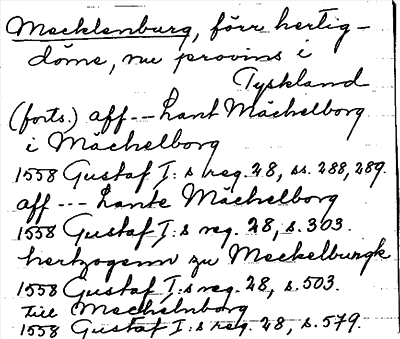 Mecklenburg, förr hertig-
döme, nu provins i
Tyskland
(forts.) aff --- Lant Mächelborg
i Mächelborg
1558 Gustaf I:s reg. 28, ss. 288, 289.
aff --- Lante Mächelborg
1558 Gustaf I:s reg. 28, s. 303.
hertzogenn zu Meckelburgk
1558 Gustaf I:s reg. 28, s. 503.
till Mechelnborg
1558 Gustaf I:s reg. 28, s. 579.